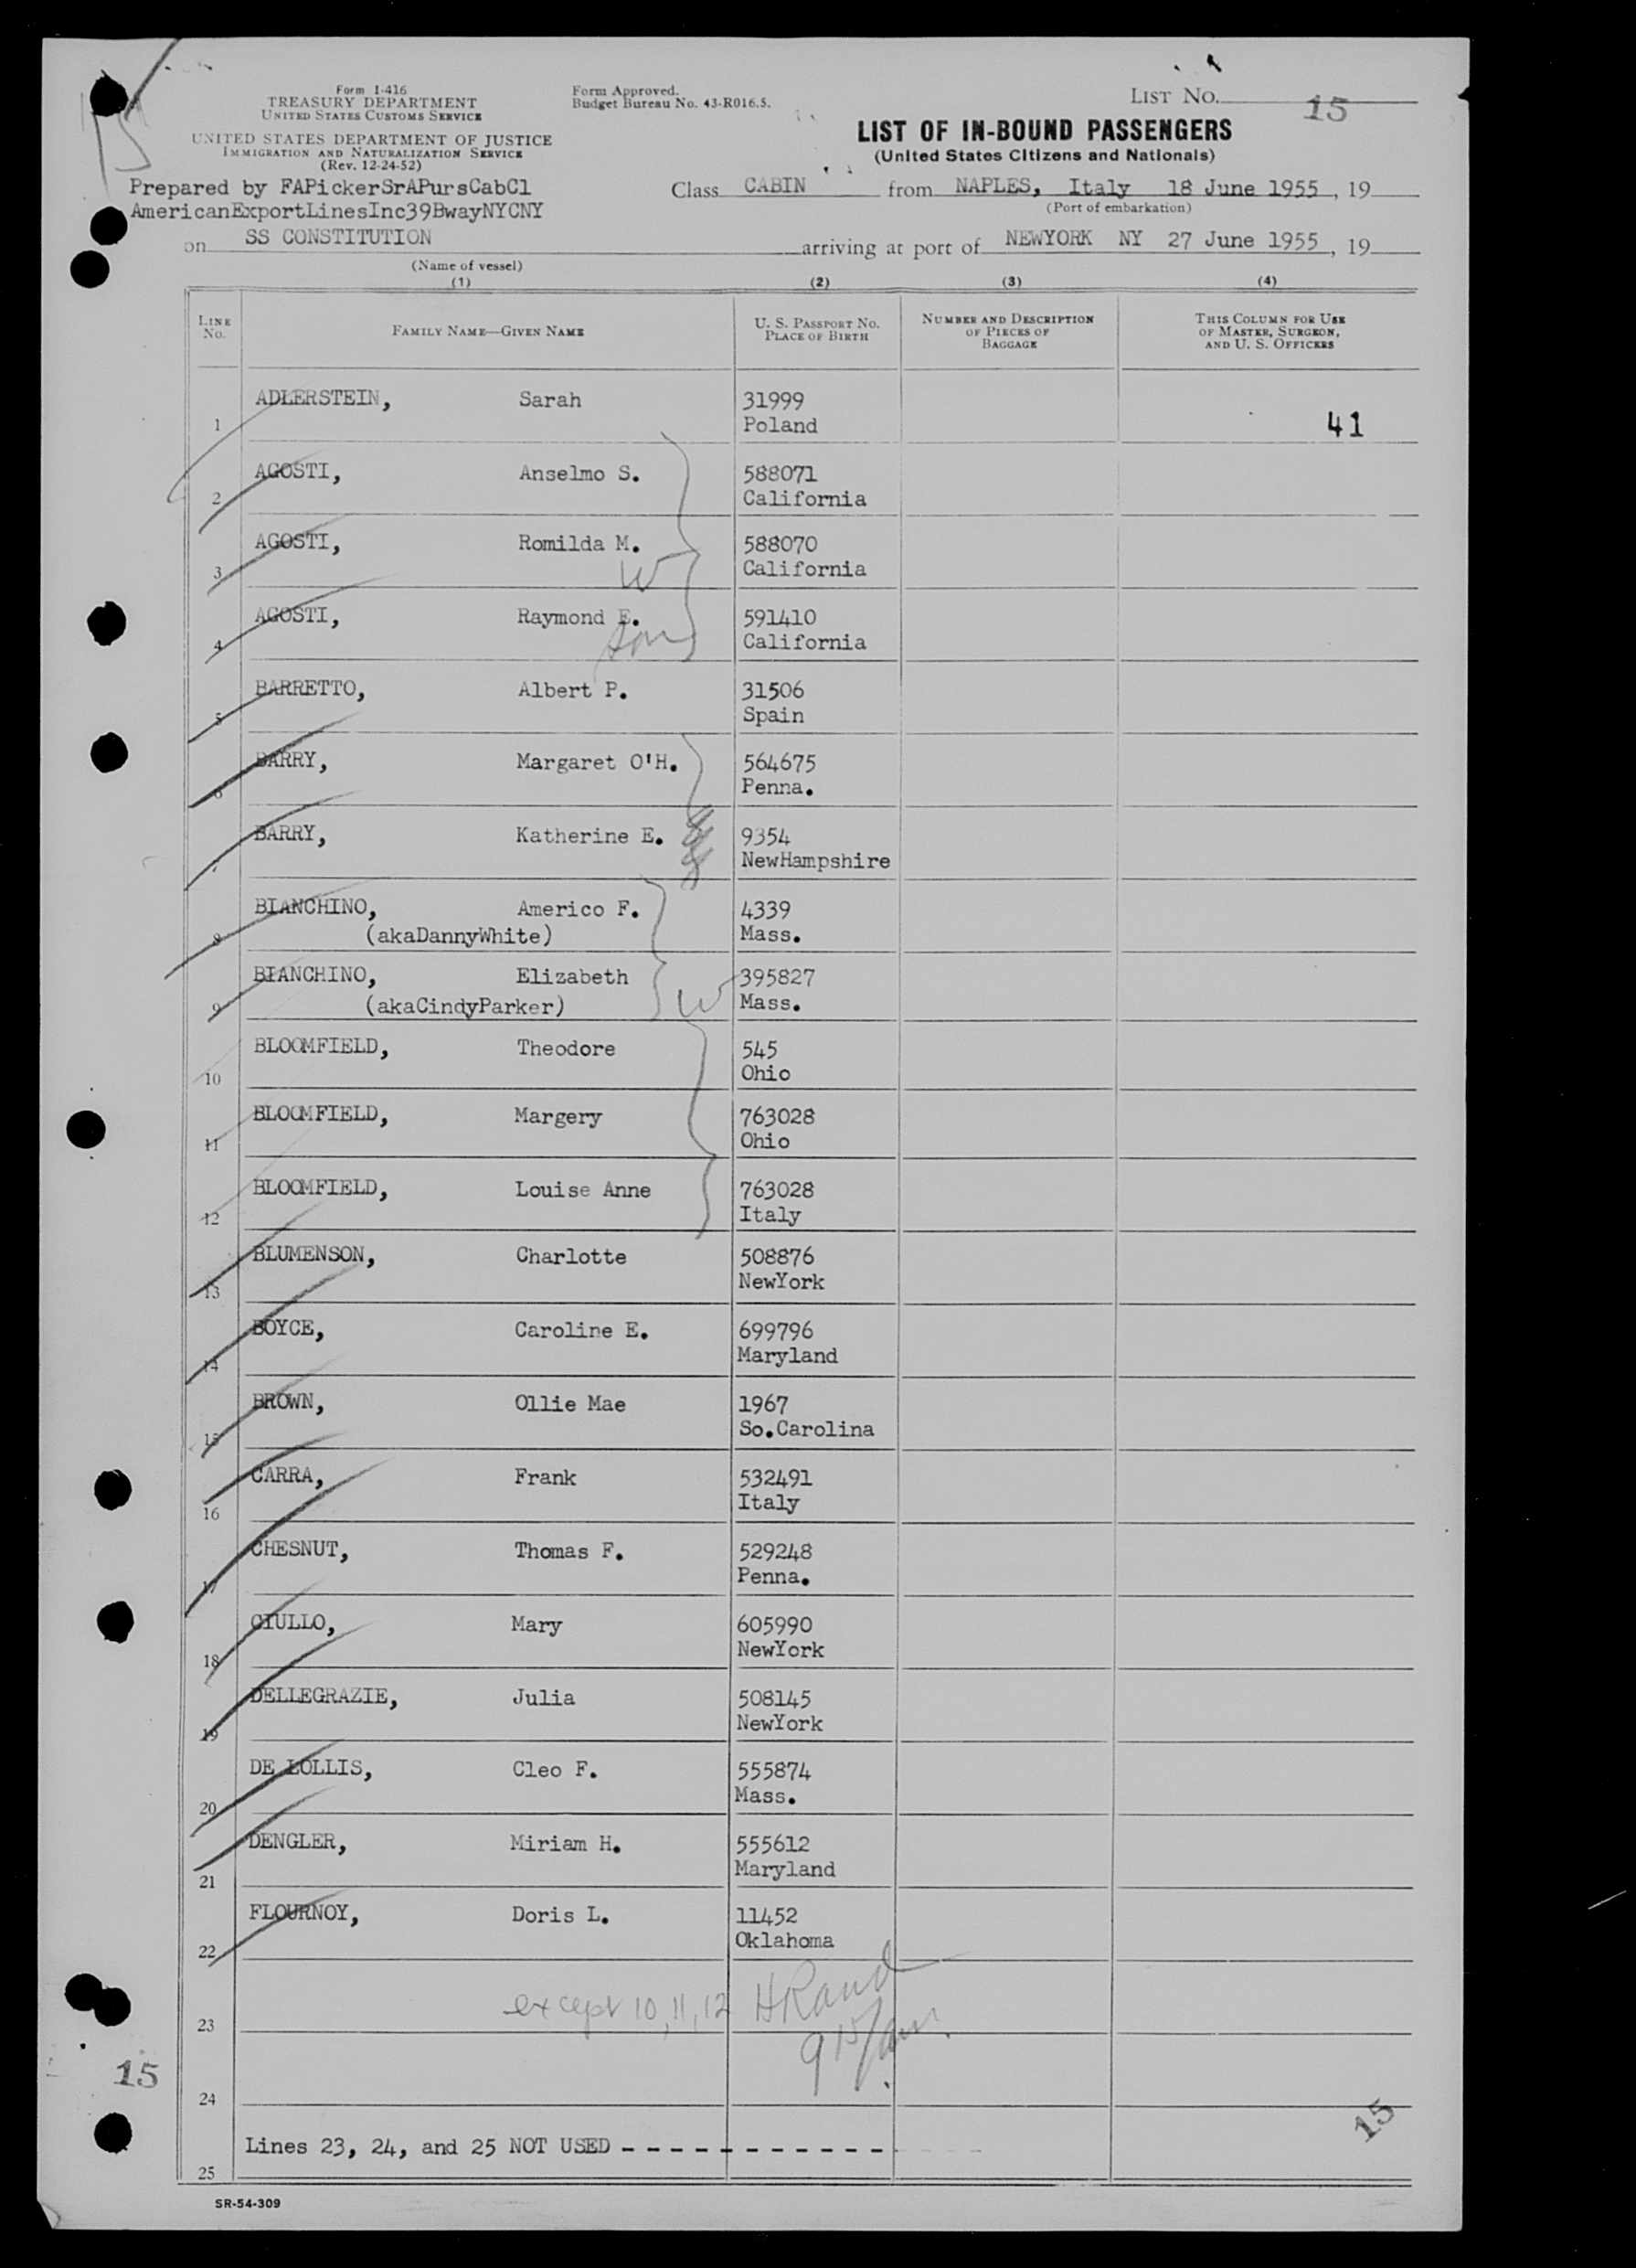 Form I-416
TREASURY DEPARTMENT
UNITED STATES CUSTOMS SERVICE
UNITED STATES DEPARTMENT OF JUSTICE
IMMIGRATION AND NATURALIZATION SERVICE
(Rev. 12-24-52)
Form Approved.
Budget Bureau No. 43-R016.5.
LIST NO. 15
LIST OF IN-BOUND PASSENGERS
(United States Citizens and Nationals)
Prepared by FAPickerSrAPursCabCl
AmericanExportLinesInc39BwayNYCNY
Class CABIN from NAPLES, Italy 18 June 1955, 19
(Port of embarkation)
on SS CONSTITUTION arriving at port of NEWYORK NY 27 June 1955, 19
(Name of vessel)
(1) (2) (3) (4)
LINE No. FAMILY NAME—GIVEN NAME U. S. PASSPORT No. PLACE OF BIRTH NUMBER AND DESCRIPTION OF PIECES OF BAGGAGE THIS COLUMN FOR USE OF MASTER, SURGEON, AND U. S. OFFICERS
ADLERSTEIN, Sarah 31999
1 Poland 41
AGOSTI, Anselmo S. 588071
2 California
AGOSTI, Romilda M. 588070
3 W California
AGOSTI, Raymond E. 591410
4 son California
BARRETTO, Albert P. 31506
5 Spain
BARRY, Margaret O'H. 564675
6 Penna.
BARRY, Katherine E. 9354
7 NewHampshire
BIANCHINO, Americo F. 4339
8 (akaDannyWhite) Mass.
BIANCHINO, Elizabeth 395827
9 (akaCindyParker) W Mass.
BLOOMFIELD, Theodore 545
10 Ohio
BLOOMFIELD, Margery 763028
11 Ohio
BLOOMFIELD, Louise Anne 763028
12 Italy
BLUMENSON, Charlotte 508876
13 NewYork
BOYCE, Caroline E. 699796
14 Maryland
BROWN, Ollie Mae 1967
15 So.Carolina
CARRA, Frank 532491
16 Italy
CHESNUT, Thomas F. 529248
17 Penna.
CIULLO, Mary 605990
18 NewYork
DELLEGRAZIE, Julia 508145
19 NewYork
DE LOLLIS, Cleo F. 555874
20 Mass.
DENGLER, Miriam H. 555612
21 Maryland
FLOURNOY, Doris L. 11452
22 Oklahoma
except 10, 11, 12 HRand
23
915/am.
15
24
15
Lines 23, 24, and 25 NOT USED - - - - - - - - - - - - -
25
SR-54-309